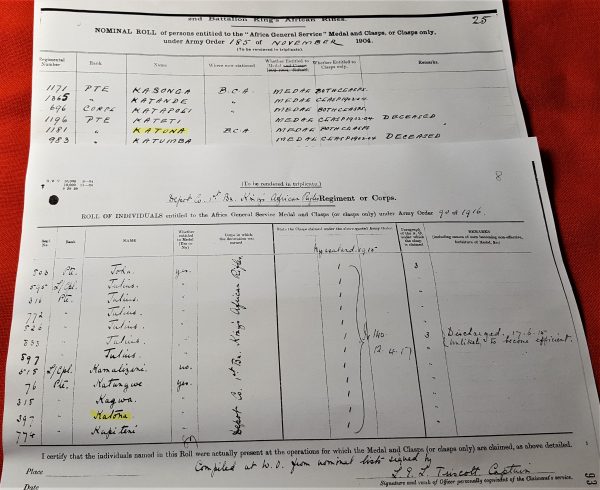 2nd Battalion King's African Rifles.
25
NOMINAL ROLL of persons entitled to the "Africa General Service" Medal and Clasps, or Clasps only,
under Army Order 185 of NOVEMBER 1904.
(To be rendered in triplicate.)
Regimental Number Rank Name Where now stationed. Whether Entitled to Medal Whether Entitled to Clasps only. Remarks.
1171 PTE KASONGA B.C.A MEDAL BOTH CLASPS.
1365 " KATANDE " MEDAL CLASP 1902-04
696 CORPL KATAPOLI " MEDAL BOTH CLASPS
1196 PTE KATETI " MEDAL CLASP 1902-04 DECEASED
1181 " KATUNA B.C.A MEDAL BOTH CLASPS
983 " KATUMBA MEDAL CLASP 1902-04 DECEASED
(To be rendered in triplicate.)
Depot Co. 1st Bn. King's African Rifles Regiment or Corps.
ROLL OF INDIVIDUALS entitled to the Africa General Service Medal and Clasps (or clasps only) under Army Order 90 of 1916.
Regtl No. Rank NAME Whether entitled to Medal (Yes or No) Corps in which the decoration was earned State the Clasps claimed under the above-quoted Army Order. Paragraph of the A. O. under which the clasp is claimed REMARKS
(including causes of men becoming non-effective, forfeiture of Medal, &c.)
Nyasaland 1915
Depot Co. 1st Bn. King's African Rifles
503 Pte. Joka. yes. 1 3
595 L/Cpl. Julius. " 1 "
316 Pte. Julius. " 1 "
772 " Julius. " 1 "
526 " Julius. " 1 "
833 " Julius. " 1 3 Discharged 17-6-15
Unlikely to become efficient.
597 " Julius. " 1 "
515 L/Cpl. Kamalizeni. no. 1 "
76 Pte. Katungwe yes. 1 "
315 " Kagwa. " 1 "
397 " Katona. " 1 "
774 " Kapiteni " 1 "
140
12.4.17
I certify that the individuals named in this Roll were actually present at the operations for which the Medal and Clasps (or clasps only) are claimed, as above detailed.
Compiled at W.O. from nominal lists signed by
Place
L. E. L. Triscott Captain
Signature and rank of Officer personally cognizant of the Claimant's service.
Date
93